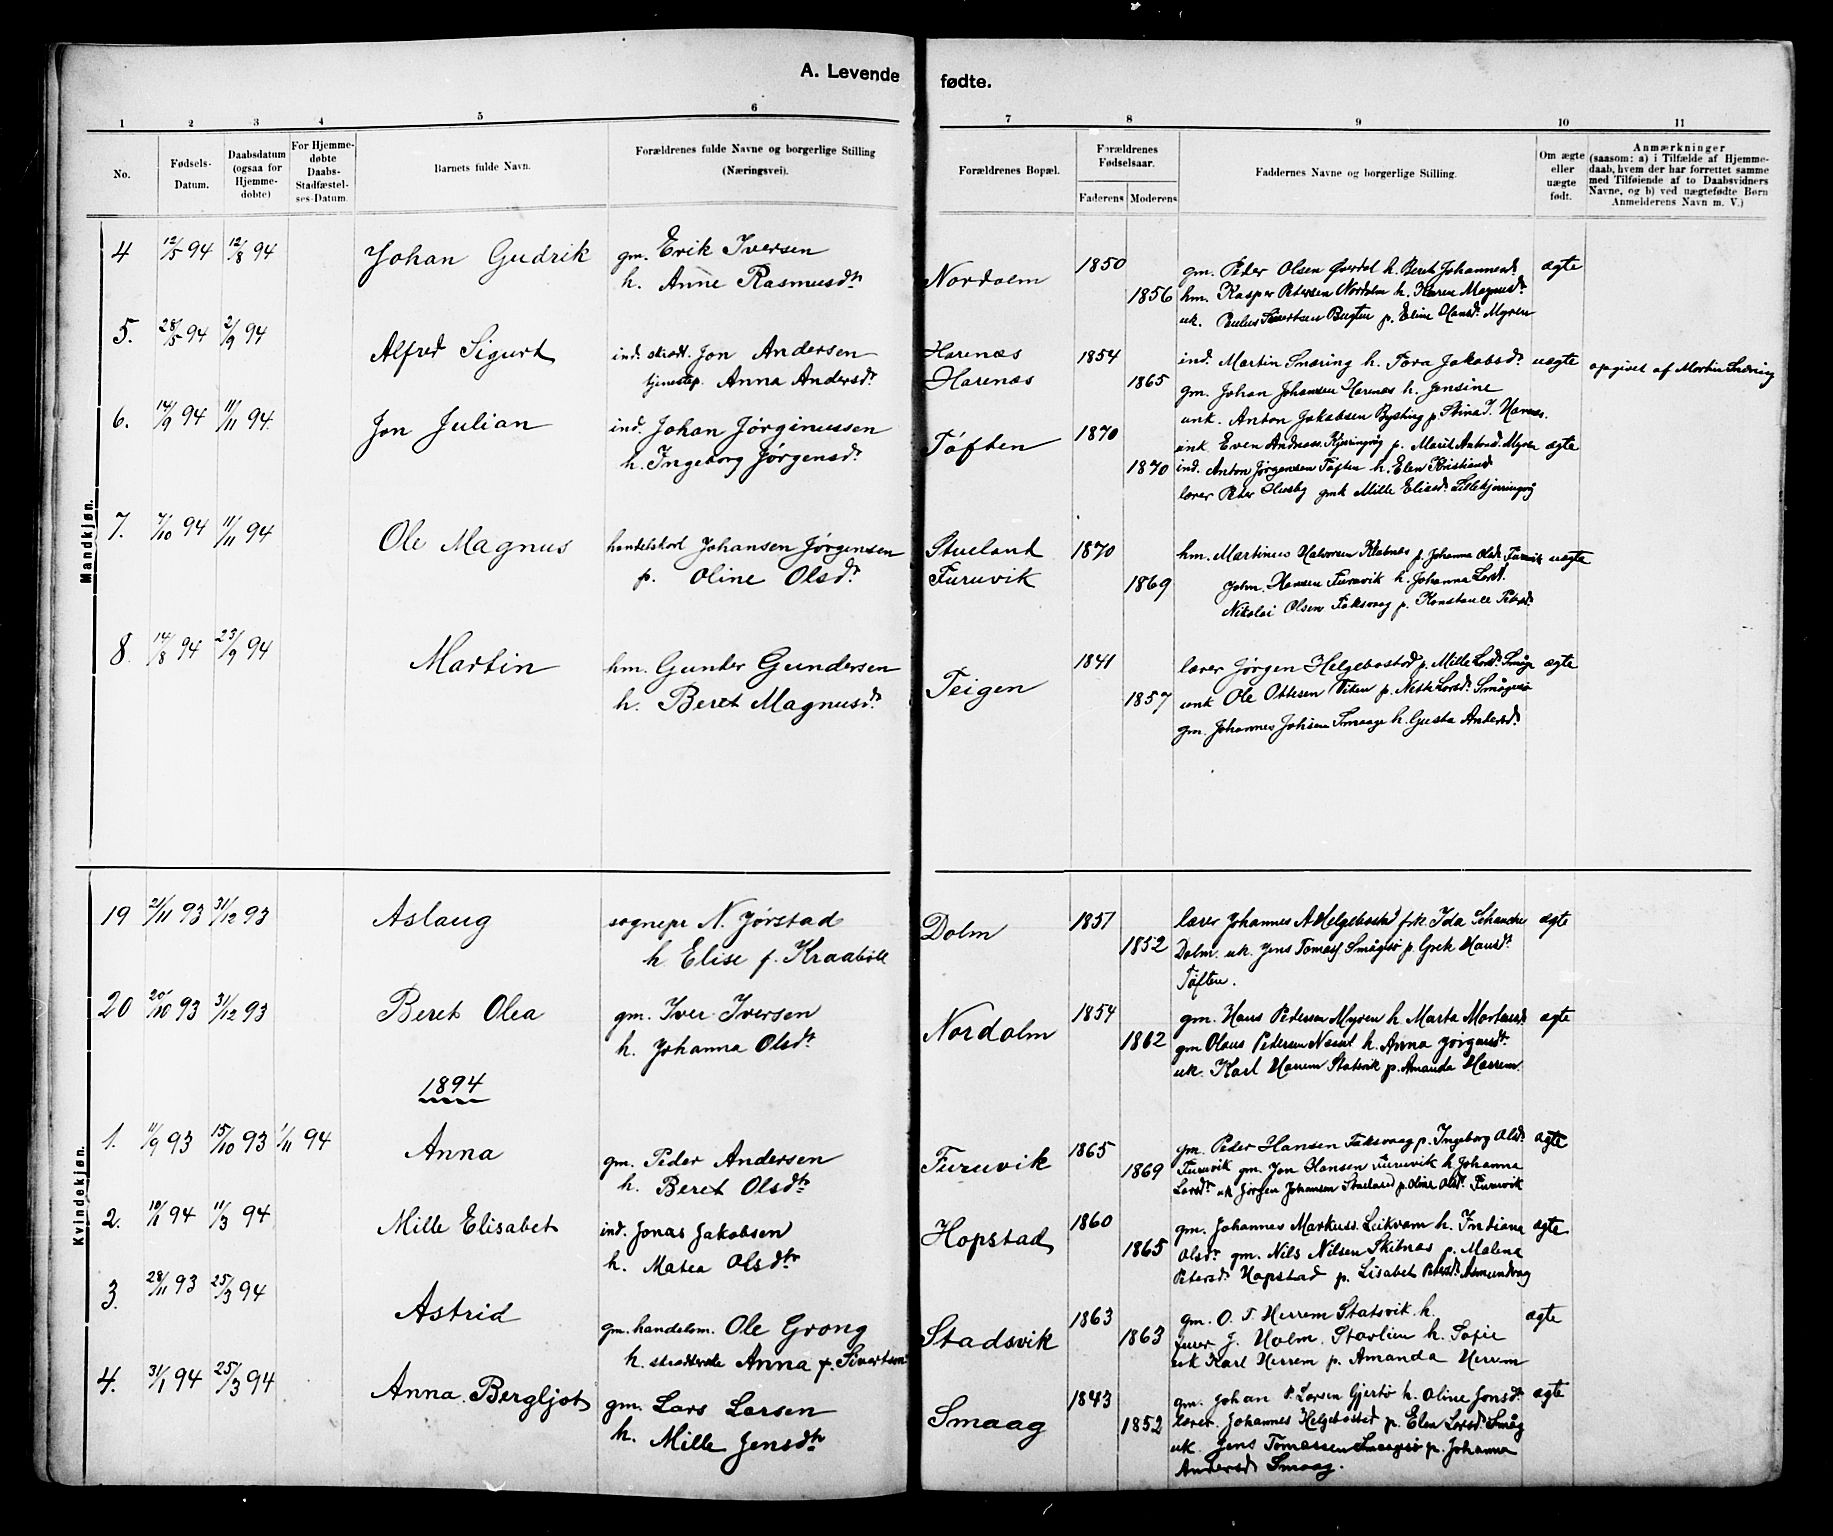 A. Levende fødte.
1 2 3 4 5 6 7 8 9 10 11
No.
Fødsels-
Datum.
Daabsdatum
(ogsaa for
Hjemme-
døbte)
For Hjemme-
døbte
Daabs-
Stadfæstel-
ses-Datum.
Barnets fulde Navn.
Forældrenes fulde Navne og borgerlige Stilling
(Næringsvei).
Forældrenes Bopæl.
Forældrenes
Fødselsaar.
Faderens Moderens
Faddernes Navne og borgerlige Stilling.
Om ægte
eller
uægte
født.
Anmærkninger
(saasom: a) i Tilfælde af Hjemme-
daab, hvem der har forrettet samme
med Tilføiende af to Daabsvidners
Navne, og b) ved uægtefødte Børn
Anmelderens Navn m. V.)
Mandkjøn.
4 12/5 94 12/8 94 Johan Gudrik gm. Erik Iversen
h. Anne Rasmusdtr
Nordolm 1850 1856
gm. Peder Olsen Øverdal h. Beret Johannesd. ægte
hm. Kasper Petersen Nordolm h. Karen Magnusdr
uk. Paulus Sivertsen Bugten p. Eline Hansd. Myren
5. 28/5 94 2/9 94 Alfred Sigurt ind. skrædd. Jon Andersen
tjenestep. Anna Andersdr
Harenæs
Harenæs
1854 1865
ind. Martin Snæring h. Tora Jakobsdr uægte opgivet af Martin Snæring
gm. Johan Johansen Harenæs h. Jensine
unk. Anton Jakobsen Bysting p. Stina J. Harenæs.
6. 14/9 94 11/11 94. Jon Julian ind. Johan Jørginussen
h. Ingeborg Jørgensdr
Tøften 1870 1870
unk Even Andreas. Kjerringvåg p. Marit Antonsd. Myren ægte
ind. Anton Jørgensen Tøften h. Elen Kristiansd
lærer Peter Husby gmk Mille Eliasdr Lillekjerringvåg
7. 7/10 94 11/11 94 Ole Magnus handelskarl Johansen Jørgensen
p. Oline Olsdr
Stueland
Furuvik
1870 1869
hm. Martinus Halvorsen Klatnes p. Johanna Olsdr Furuvik uægte
Johm. Hansen Furuvik h. Johanna Larsd.
Nikolai Olsen Faksvaag p. Konstance Petersd.
8. 14/8 94 23/9 94 Martin hm. Gunder Gundersen
h. Beret Magnusdr
Teigen 1841 1857
lærer Jørgen Helgebostad p. Mille Larsdr Småge ægte
unk Ole Ottesen Viten p. Nette Larsdr Smågesø
gm. Johannes Johsen Smaage h. Gusta Andersdr
Kvindekjøn.
19 21/11 93 31/12 93 Aslaug sognepr N. Jørstad
h Elise f. Kraabøll
Dolm 1851 1852
lærer Johannes A Helgebostad frk. Ida Schanche ægte
Dolm. uk. Jens Tomasf Smågsø p. Grete Hansdr
Tøften.
20 20/10 93 31/12 93 Beret Olea gm. Iver Iversen
h. Johanna Olsdtr
Nordolm 1854 1862
gm. Hans Pedersen Myren h. Marta Martinusd. ægte
gm Olaus Pedersen Næset h. Anna Jørgensdr
uk. Karl Herrem Statsvik p. Amanda Herrem.
1894
1. 11/9 93 15/10 93 1/11 94 Anna gm. Peder Andersen
h. Beret Olsdtr
Furuvik 1865 1869
gm. Peder Hansen Faksvaag p. Ingeborg Olsdr ægte
Furuvik gm. Jon Hansen Furuvik h. Johanna
Larsdr uk Jørgen Johansen Stueland p. Oline Olsdr Furuvik
2. 10/1 94 11/3 94 Mille Elisabet ind. Jonas Jakobsen
h. Matea Olsdtr
Hopstad 1860 1865
gm. Johannes Markuss. Leikvam h. Indiana ægte
Olsdr gm. Nils Nilsen Skitnæs p. Malena
Petersdr Hopstad p. Lisabet Petersdr Asmundvag
3. 28/11 93 25/3 94 Astrid gm. handelsm. Ole Grong
h. Anna f. Sivertsen
Stadsvik 1863 1863
gm. O. T. Herrem Statsvik h. ægte
J. Holm. Storlien h. Sofie
uk Karl Herrem p. Amanda Herrem
4. 31/1 94 25/3 94 Anna Bergljot gm. Lars Larsen
h. Mille Jensdtr
Smaag 1843 1852
gm. Johan P. Larsen Gjertø h. Oline Jonsdr ægte
lærer. Johannes Helgebostad p. Elen Larsdr Småg
uk. Jens Tomassen Smaagsø p. Johanna
Andersd. Smaag.